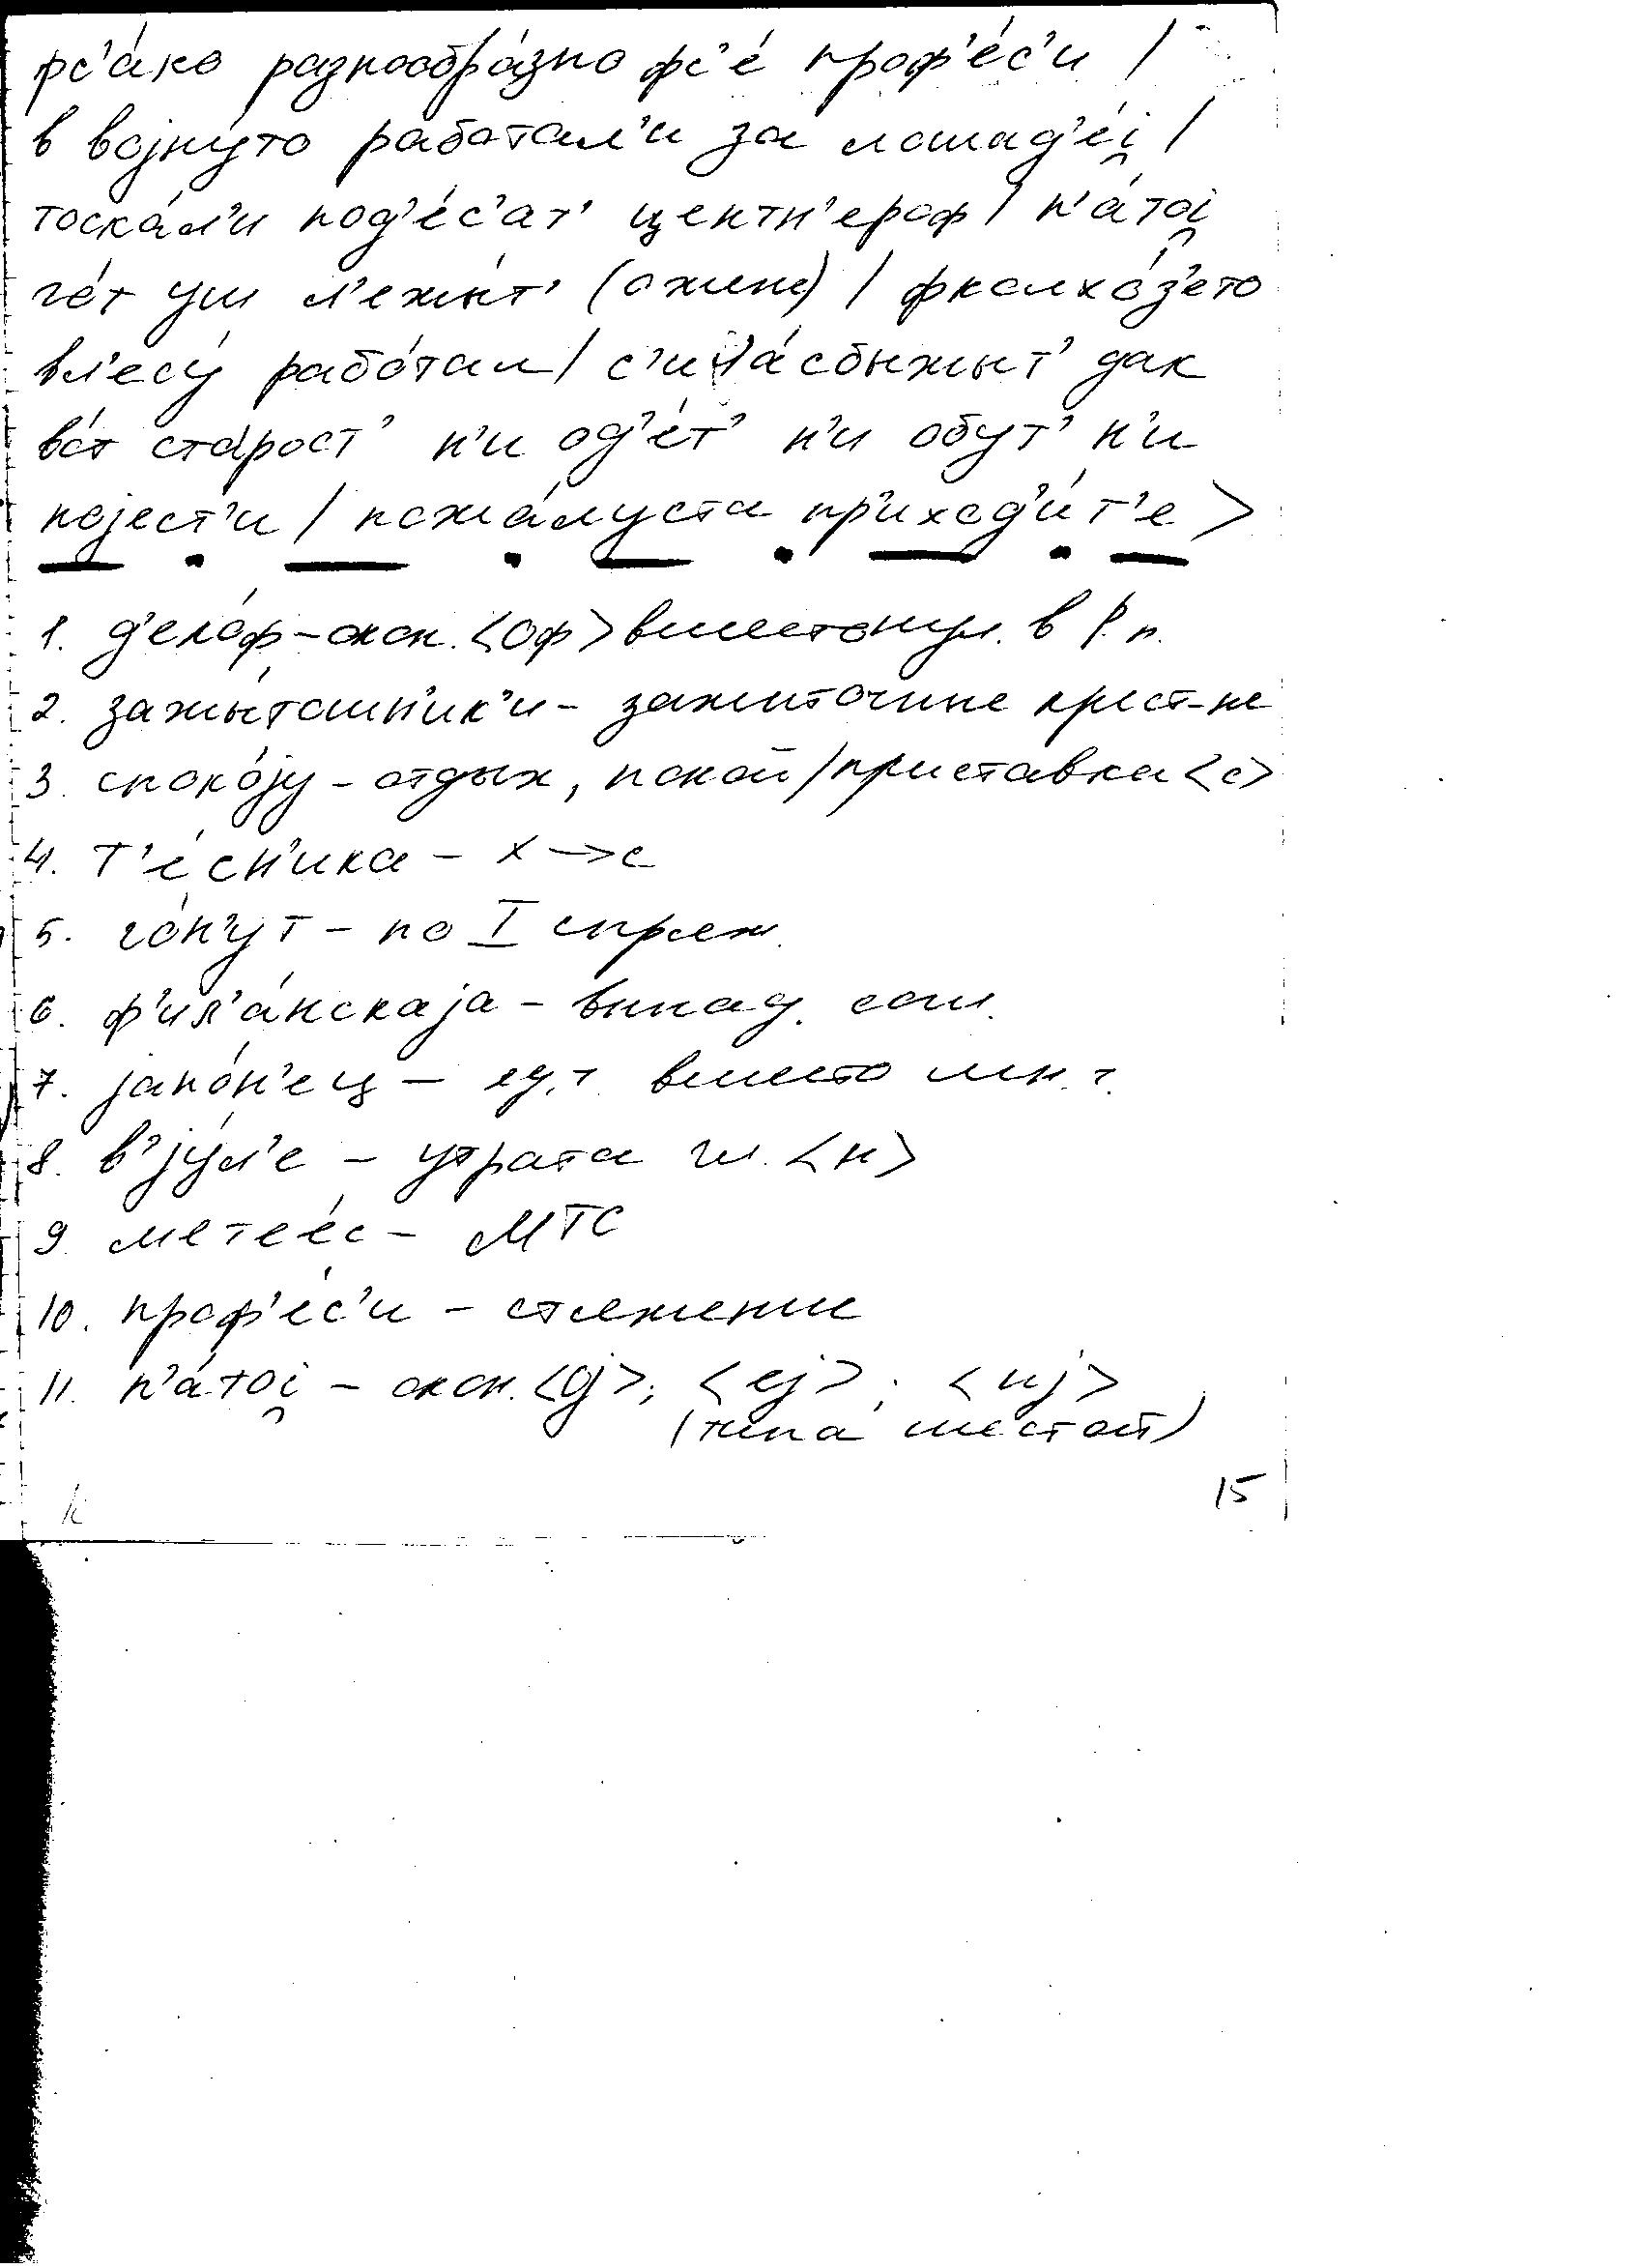 фс'а́ко разнообра́зно фс'е́ проф'е́с'и /
в војну́то работал'и за лошад'е́i̯ /
тоска́л'и под'е́с'ат' центн'ероф / п'а́тоi̯
го́т уш л'ежы́т' (о жене) / фколхо́з'ето
вл'есу́ рабо́тал / с'ича́сбыжыт' дак
во́т ста́рост' н'и од'е́т' н'и обут' н'и
појест'и / пожа́луста пр'иход'и́т'е >
1. д'ело́ф – окон. <оф> вместо нул. в Р. п.
2. зажы́тошн'ик'и – зажиточные крест-не
3. споко́ју – отдых, покой / приставка <с>
4. т'е́сн'ика – х → с
5. го́н'ут – по I спряж.
6. ф'ил'а́нскаја – выпад. согл.
7. јапо́н'ец – ед. ч. вместо мн. ч.
8. в'ју́л'е – утрата гл. <и>
9. метее́с – МТС
10. проф'е́с'и – стяжение
11. п'а́тоi̯ – окон. <оj>; <еj>; <иj>
(типа шестой)
15